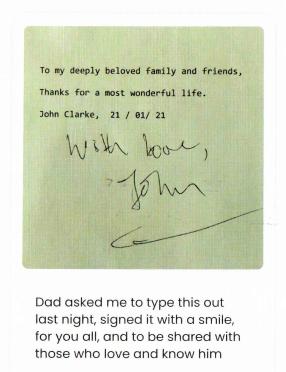 To my deeply beloved family and friends,
Thanks for a most wonderful life.
John Clarke, 21 / 01/ 21
With love,
John
Dad asked me to type this out
last night, signed it with a smile,
for you all, and to be shared with
those who love and know him